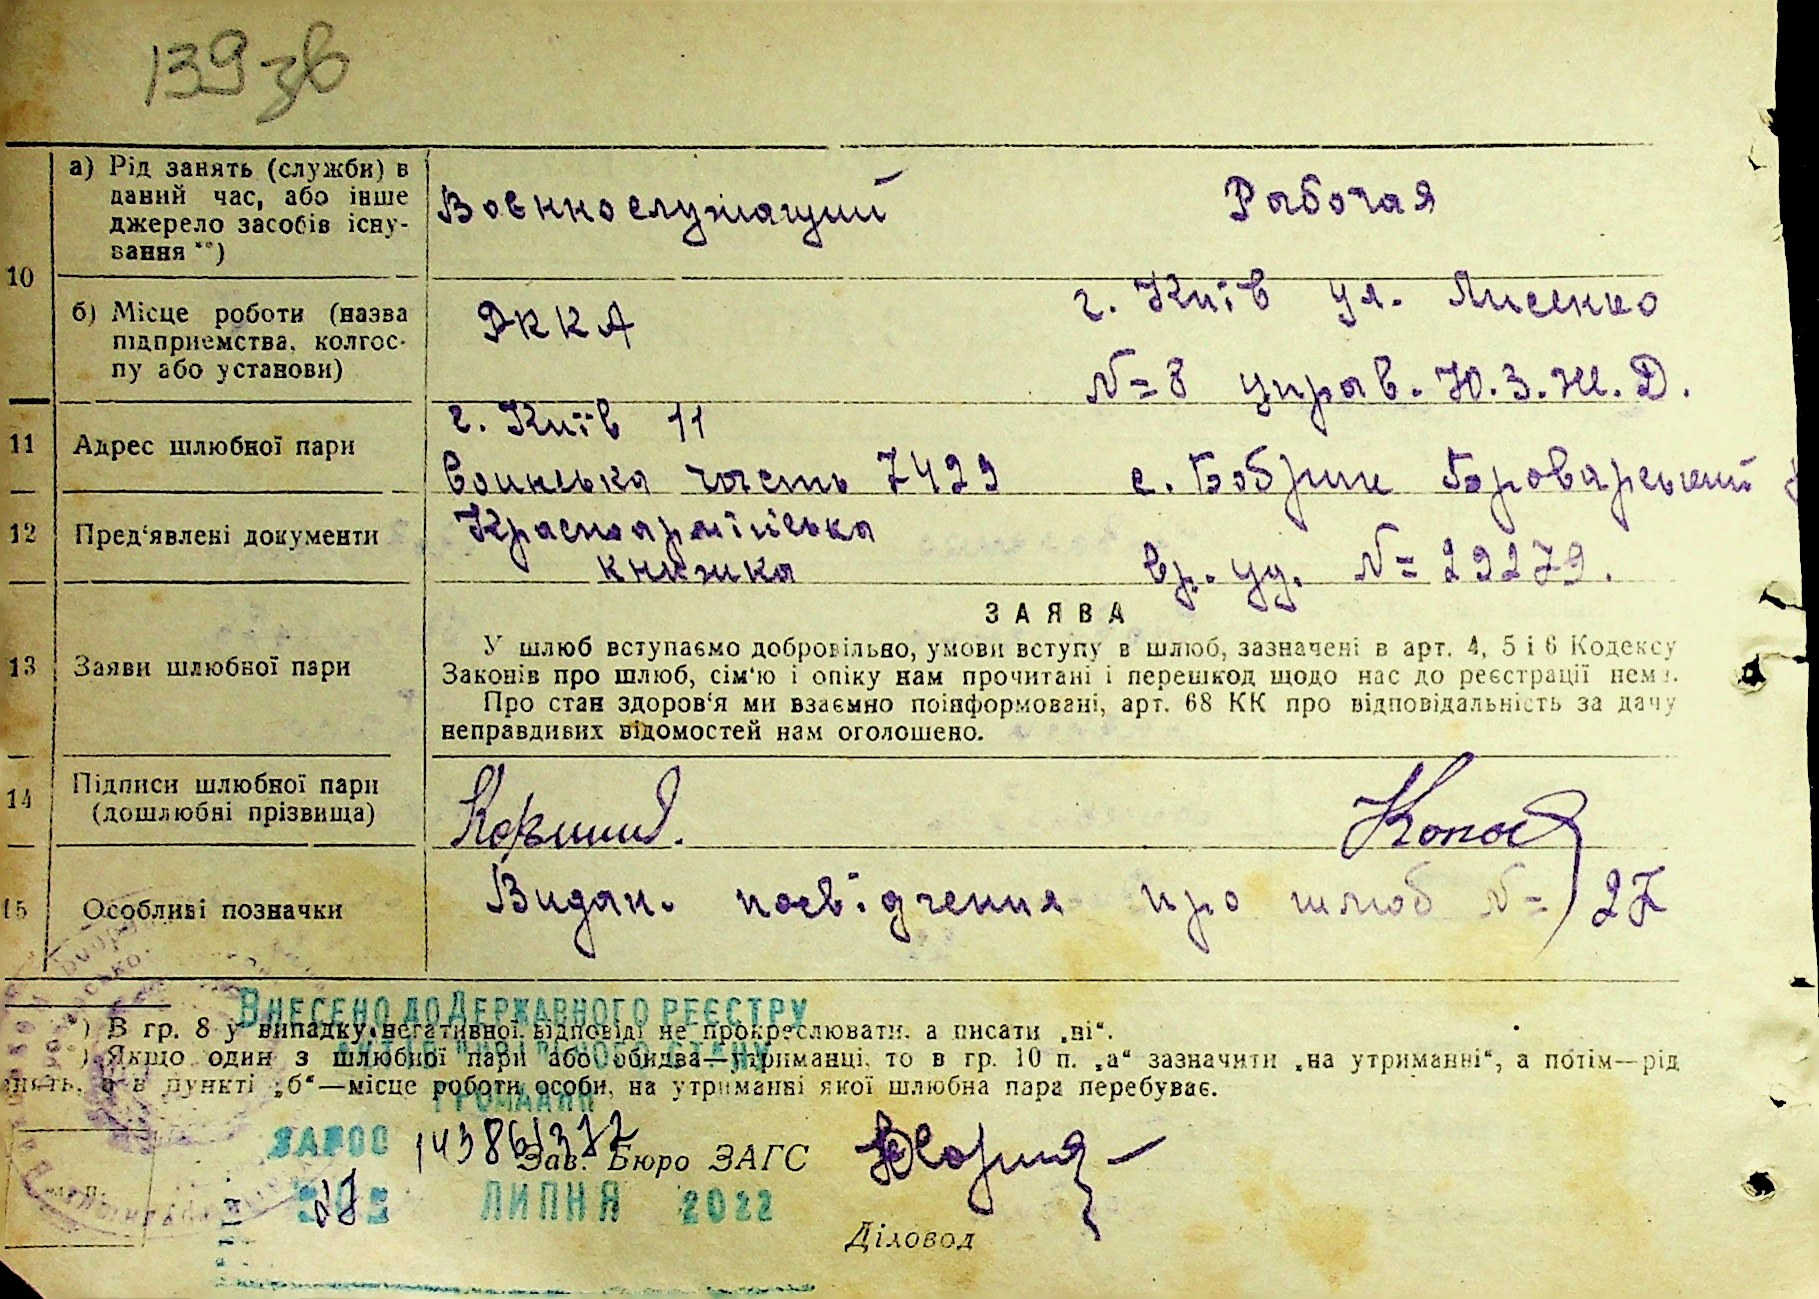 139 зв
а) Рід занять (служби) в
даний час, або інше
джерело засобів існу-
вання **)
Военнослужащий
Рабочая
10
б) Місце роботи (назва
підприємства, колгос-
пу або установи)
РККА
г. Київ ул. Лисенко
№ 8 управ. Ю.З.Ж.Д.
11
Адрес шлюбної пари
г. Київ 11
Воинська часть 7429
с. Бобрик Броварський
12
Пред'явлені документи
Красноармійська
книжка
вр. уд. № 29279.
13
Заяви шлюбної пари
ЗАЯВА
У шлюб вступаємо добровільно, умови вступу в шлюб, зазначені в арт. 4, 5 і 6 Кодексу
Законів про шлюб, сім'ю і опіку нам прочитані і перешкод щодо нас до реєстрації нема.
Про стан здоров'я ми взаємно поінформовані, арт. 68 КК про відповідальність за дачу
неправдивих відомостей нам оголошено.
14
Підписи шлюбної пари
(дошлюбні прізвища)
15
Особливі позначки
Видан. посвідчення про шлюб № 27
Внесено до Державного реєстру
актів цивільного стану
громадян
*) В гр. 8 у випадку негативної відповіді не прокреслювати, а писати „ні“.
) Якщо один з шлюбної пари або обидва—утриманці, то в гр. 10 п. „а“ зазначити „на утриманні“, а потім—рід
занять, а в пункті „б“—місце роботи особи, на утриманні якої шлюбна пара перебуває.
Зав. Бюро ЗАГС
ЛИПНЯ 2022
Діловод